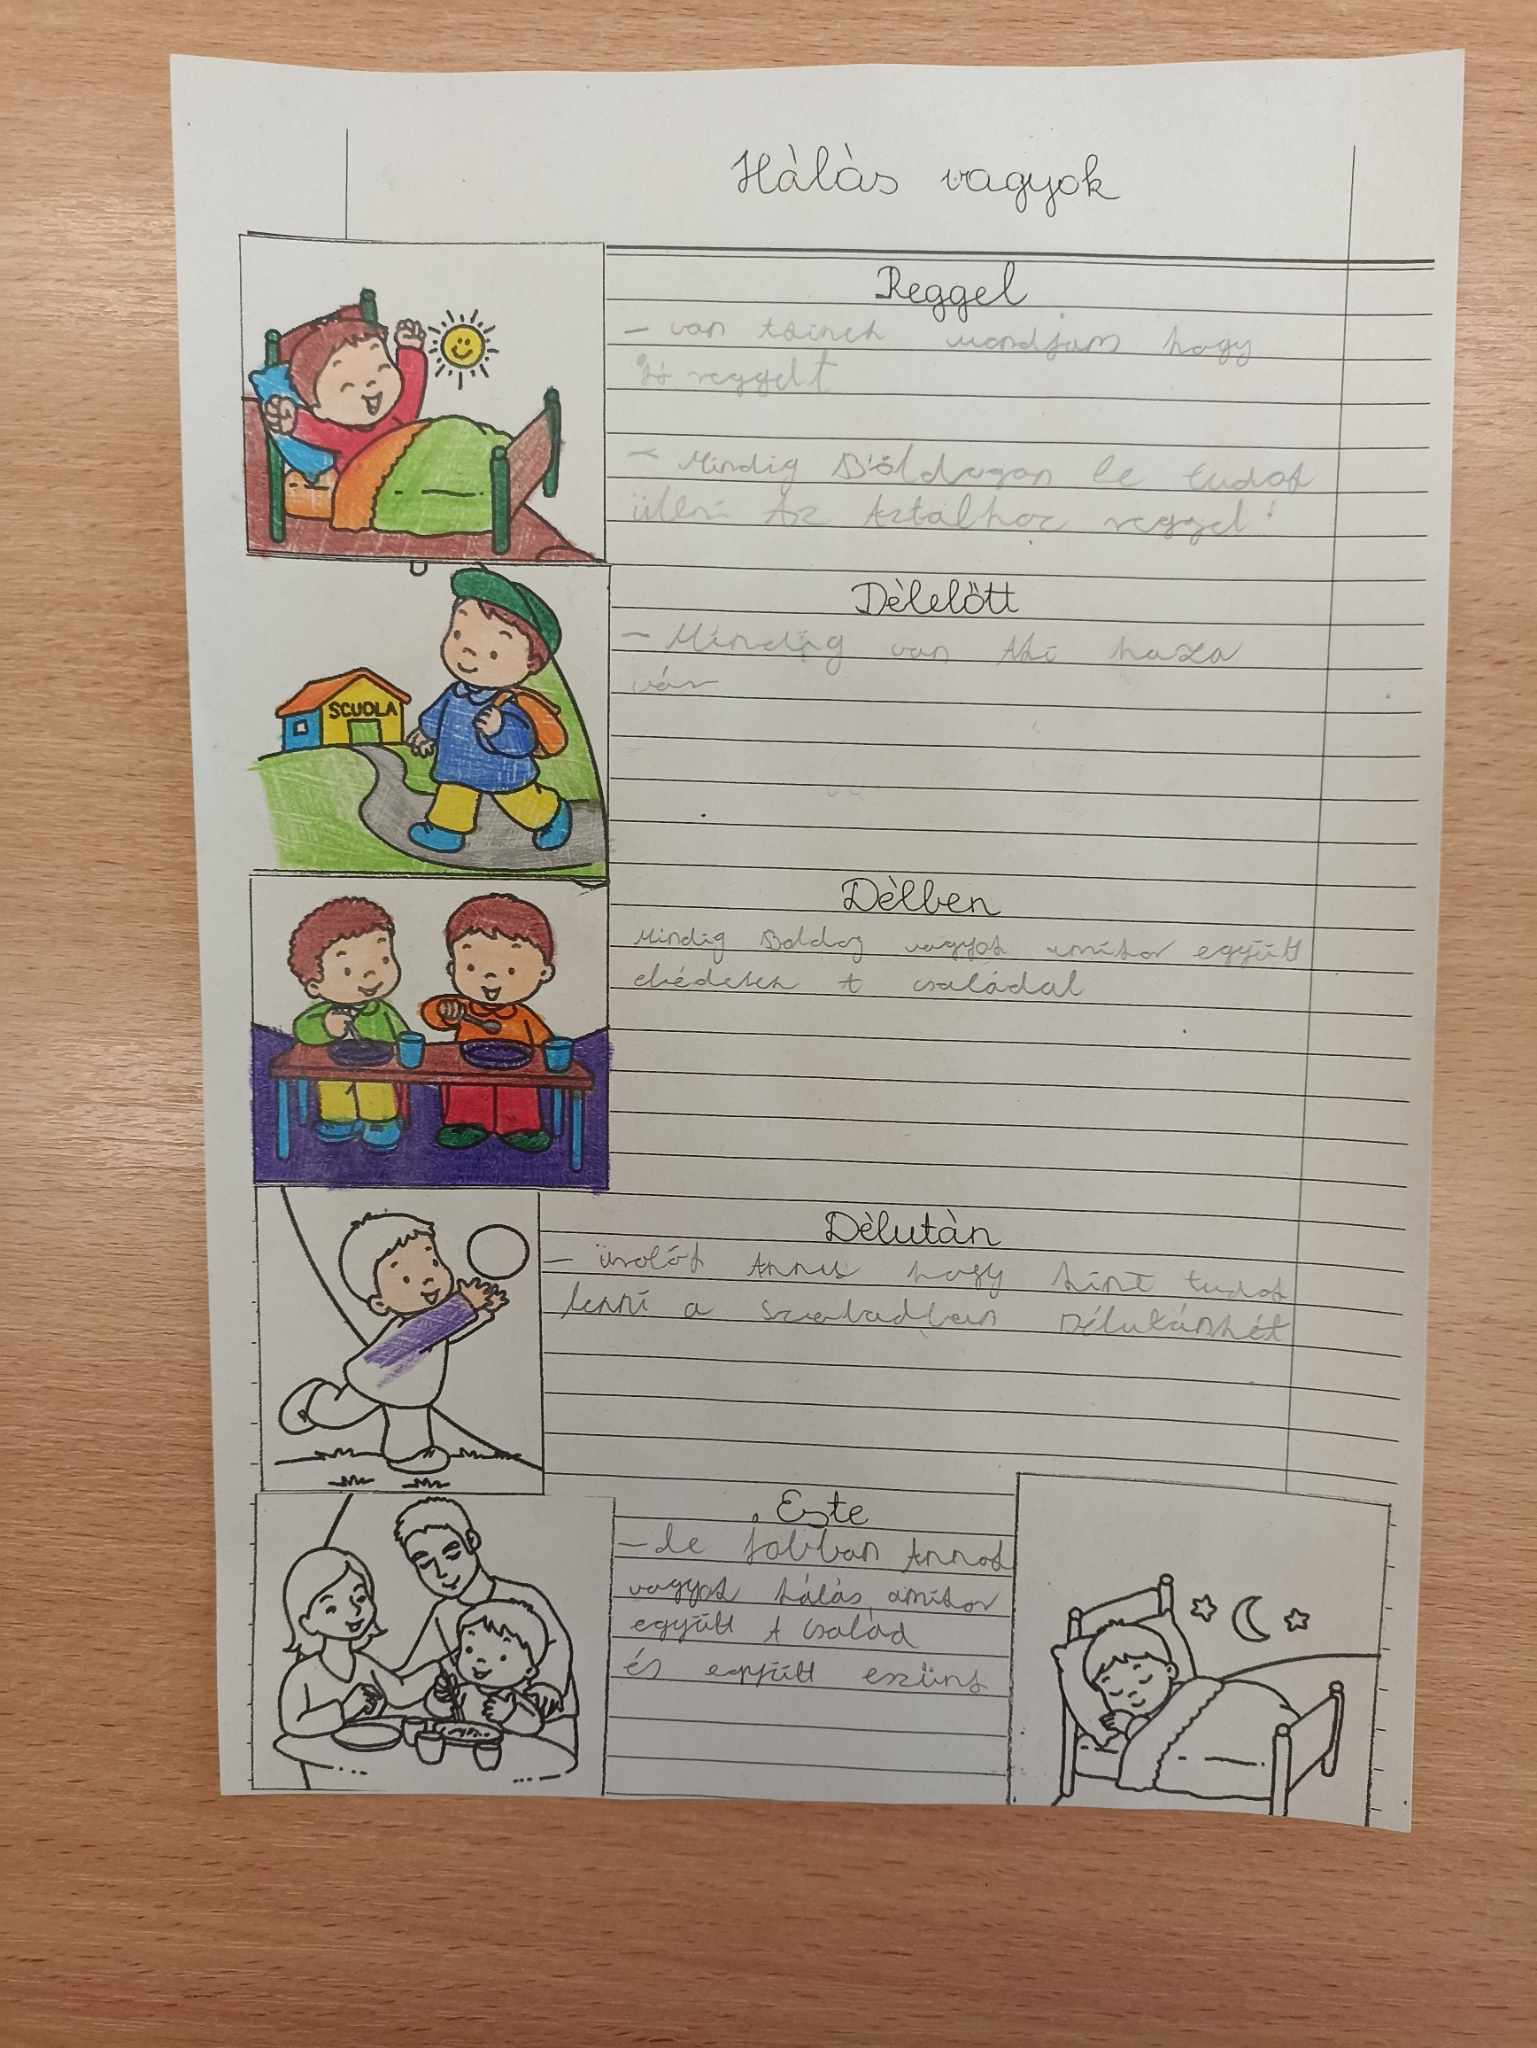 Hálás vagyok
Reggel
- van kinek mondjam hogy
jó reggelt
- Mindig Böldogan le tudok
üllni Az Asztalhoz reggel!
SCUOLA
Délelőtt
- Mindig van Aki haza
vár
Délben
Mindig Boldog vagyok amikor együtt
ebédelek A családal
Délután
- örolök Annak hogy kint tudok
lenni a szabadban Délutánként
Este
- le jobban Annak
vagyok hálás, amikor
együtt A család
és együtt eszünk